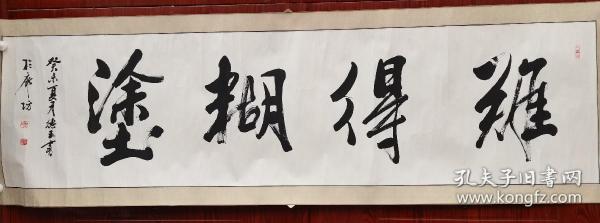 難得糊塗
癸未夏月德玉書
於廊坊
孔夫子旧书网
www.kongfz.com